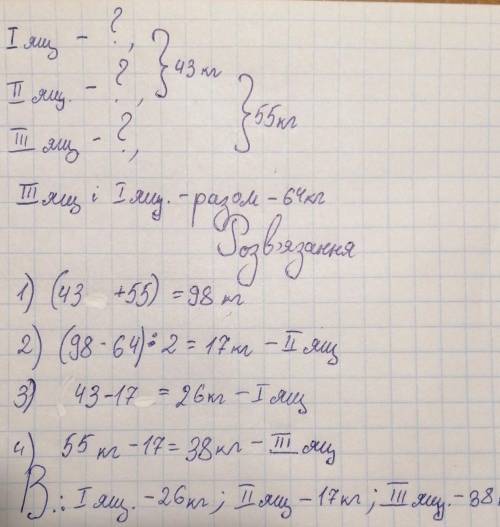 I ящ - ?,
} 43 кг
II ящ. - ?,
} 55 кг
III ящ - ?,
III ящ і I ящ. - разом - 64 кг
Розв'язання
1) (43 +55) = 98 кг
2) (98 - 64) : 2 = 17 кг - II ящ
3) 43 - 17 = 26 кг - I ящ
4) 55 кг - 17 = 38 кг - III ящ
В.: I ящ. - 26 кг ; II ящ - 17 кг ; III ящ. - 38